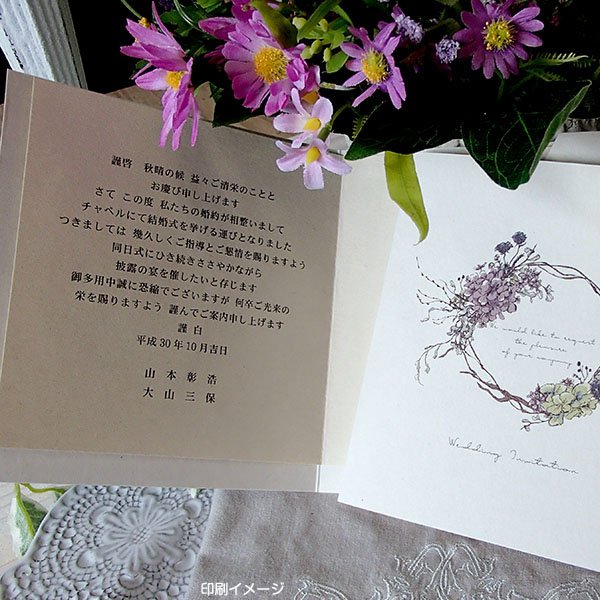 謹啓 秋晴の候 益々ご清栄のことと
お慶び申し上げます
さて この度 私たちの婚約が相整いまして
チャペルにて結婚式を挙げる運びとなりました
つきましては 幾久しくご指導とご懇情を賜りますよう
同日式にひき続きささやかながら
披露の宴を催したいと存じます
御多用中誠に恐縮でございますが 何卒ご光来の
栄を賜りますよう 謹んでご案内申し上げます
謹 白
平成30年10月吉日
山 本 彰 浩
大 山 三 保
We would like to request
the pleasure
of your company
Wedding Invitation
印刷イメージ